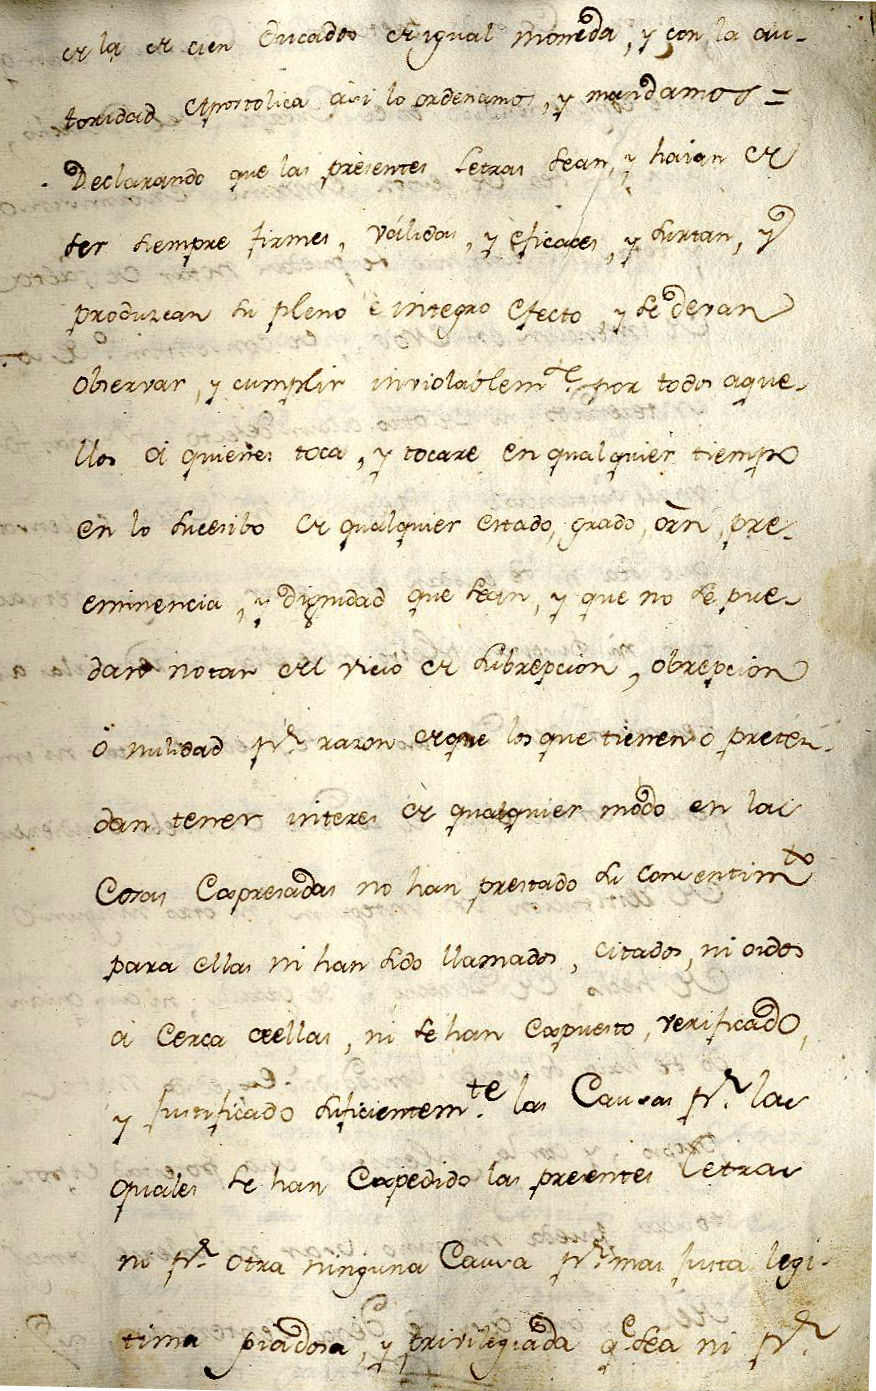 de la de cien Ducados de igual moneda, y con la au-
toridad Apostolica asi lo ordenamos, y mandamos =
Declarando que las presentes Letras sean, y haian de
ser siempre firmes, válidas, y eficaces, y surtan, y
produzcan su pleno è integro efecto y se devan
observar, y cumplir inviolablem.te por todos aque-
llos á quienes toca, y tocare en qualquier tiempo
en lo sucesibo de qualquier estado, grado, orñ, pre-
eminencia, y dignidad que sean, y que no se pue-
dan notar del vicio de subrepcion, obrepcion
ó nulidad pr. razon de que los que tienen o preten-
dan tener interes de qualquier modo en las
Cosas Expresadas no han prestado su consentim.to
para ellas ni han sido llamados, citados, ni oidos
á cerca de ellas, ni se han expuesto, verificado,
y justificado suficientem.te las Causas pr. las
quales se han Expedido las presentes Letras
ni pr. otra ninguna Causa pr. mas justa legi-
tima piadosa, y privilegiada q.e sea ni pr.